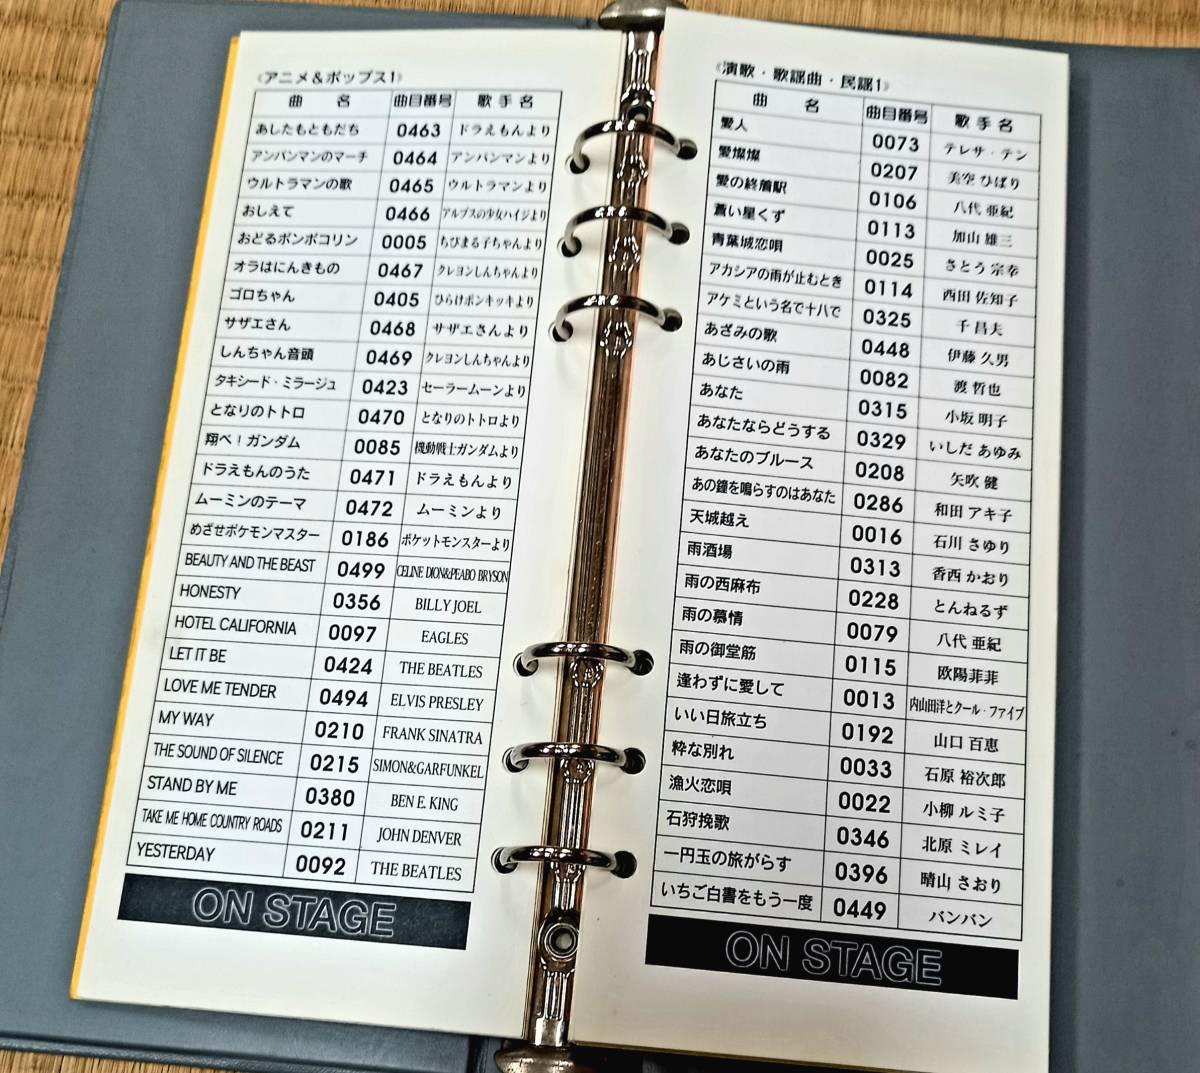 《アニメ&ポップス1》
曲 名 曲目番号 歌手名
あしたもともだち 0463 ドラえもんより
アンパンマンのマーチ 0464 アンパンマンより
ウルトラマンの歌 0465 ウルトラマンより
おしえて 0466 アルプスの少女ハイジより
おどるポンポコリン 0005 ちびまる子ちゃんより
オラはにんきもの 0467 クレヨンしんちゃんより
ゴロちゃん 0405 ひらけポンキッキより
サザエさん 0468 サザエさんより
しんちゃん音頭 0469 クレヨンしんちゃんより
タキシード・ミラージュ 0423 セーラームーンより
となりのトトロ 0470 となりのトトロより
翔べ!ガンダム 0085 機動戦士ガンダムより
ドラえもんのうた 0471 ドラえもんより
ムーミンのテーマ 0472 ムーミンより
めざせポケモンマスター 0186 ポケットモンスターより
BEAUTY AND THE BEAST 0499 CELINE DION&PEABO BRYSON
HONESTY 0356 BILLY JOEL
HOTEL CALIFORNIA 0097 EAGLES
LET IT BE 0424 THE BEATLES
LOVE ME TENDER 0494 ELVIS PRESLEY
MY WAY 0210 FRANK SINATRA
THE SOUND OF SILENCE 0215 SIMON&GARFUNKEL
STAND BY ME 0380 BEN E. KING
TAKE ME HOME COUNTRY ROADS 0211 JOHN DENVER
YESTERDAY 0092 THE BEATLES
ON STAGE
《演歌・歌謡曲・民謡1》
曲 名 曲目番号 歌手名
愛人 0073 テレサ・テン
愛燦燦 0207 美空 ひばり
愛の終着駅 0106 八代 亜紀
蒼い星くず 0113 加山 雄三
青葉城恋唄 0025 さとう 宗幸
アカシアの雨が止むとき 0114 西田 佐知子
アケミという名で十八で 0325 千 昌夫
あざみの歌 0448 伊藤 久男
あじさいの雨 0082 渡 哲也
あなた 0315 小坂 明子
あなたならどうする 0329 いしだ あゆみ
あなたのブルース 0208 矢吹 健
あの鐘を鳴らすのはあなた 0286 和田 アキ子
天城越え 0016 石川 さゆり
雨酒場 0313 香西 かおり
雨の西麻布 0228 とんねるず
雨の慕情 0079 八代 亜紀
雨の御堂筋 0115 欧陽菲菲
逢わずに愛して 0013 内山田洋とクール・ファイブ
いい日旅立ち 0192 山口 百恵
粋な別れ 0033 石原 裕次郎
漁火恋唄 0022 小柳 ルミ子
石狩挽歌 0346 北原 ミレイ
一円玉の旅がらす 0396 晴山 さおり
いちご白書をもう一度 0449 バンバン
ON STAGE